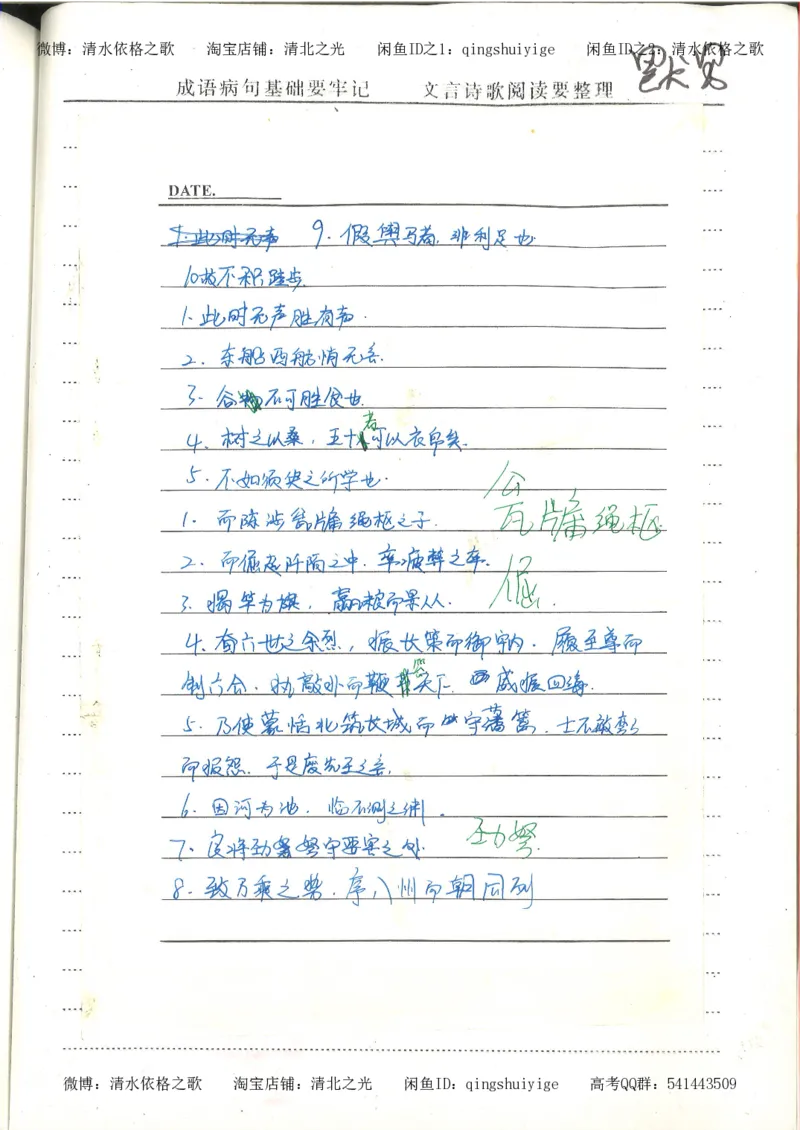 微博：清水依格之歌 淘宝店铺：清北之光 闲鱼ID之1：qingshuiyige 闲鱼ID之2：清水依格之歌
成语病句基础要牢记 文言诗歌阅读要整理
DATE.
1.此时无声 9. 假舆马者，非利足也
10故不积跬步
1. 此时无声胜有声.
2. 东船西舫悄无言.
3. 谷 不可胜食也.
4. 树之以桑，五十者可以衣帛矣.
5. 不如须臾之所学也.
1. 而陈涉瓮牖绳枢之子. 瓮牖绳枢
2. 而倔起阡陌之中. 率疲弊之卒. 倔
3. 揭竿为旗，赢粮而景从.
4. 奋六世之余烈，振长策而御宇内. 履至尊而
制六合. 执敲扑而鞭笞天下. 威振四海.
5. 乃使蒙恬北筑长城而守藩篱. 士不敢弯
而报怨. 于是废先王之
6. 因河为池. 临不测之渊.
7. 良将劲弩守要害之处. 劲弩.
8. 致万乘之势. 序八州而朝同列
微博：清水依格之歌 淘宝店铺：清北之光 闲鱼ID：qingshuiyige 高考QQ群：541443509